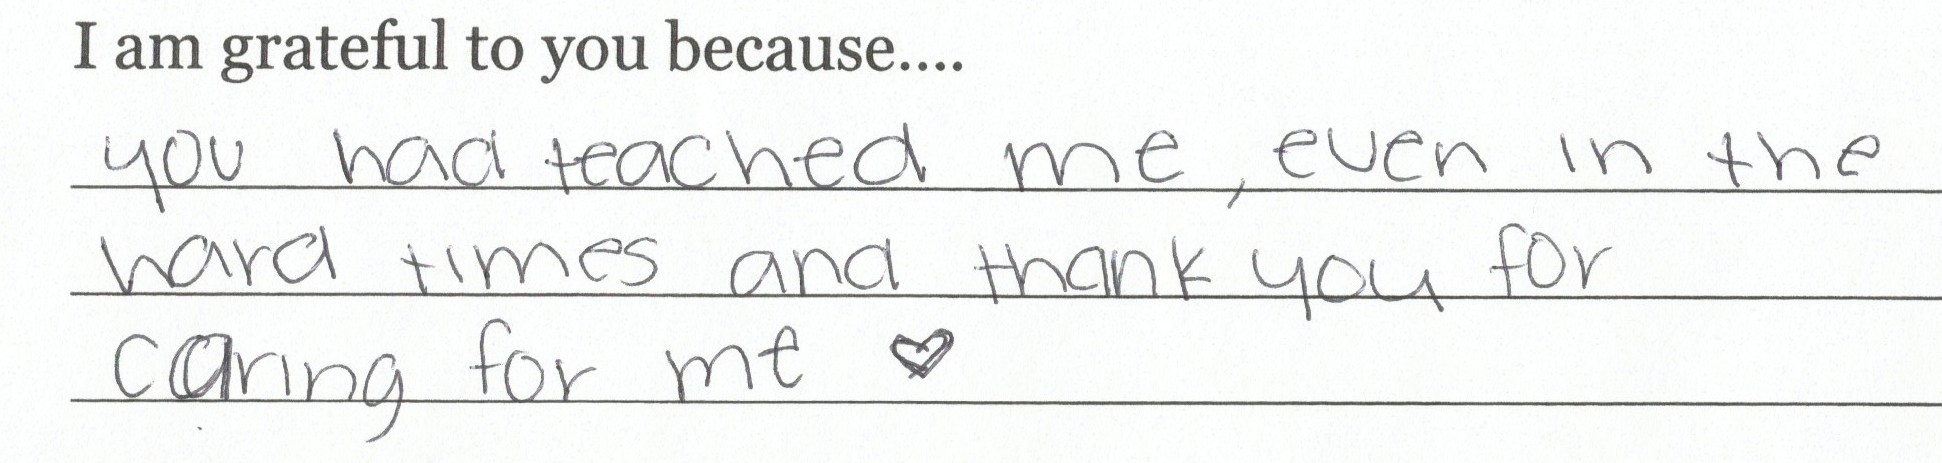 I am grateful to you because....
you had teached me, even in the
hard times and thank you for
caring for me ♡